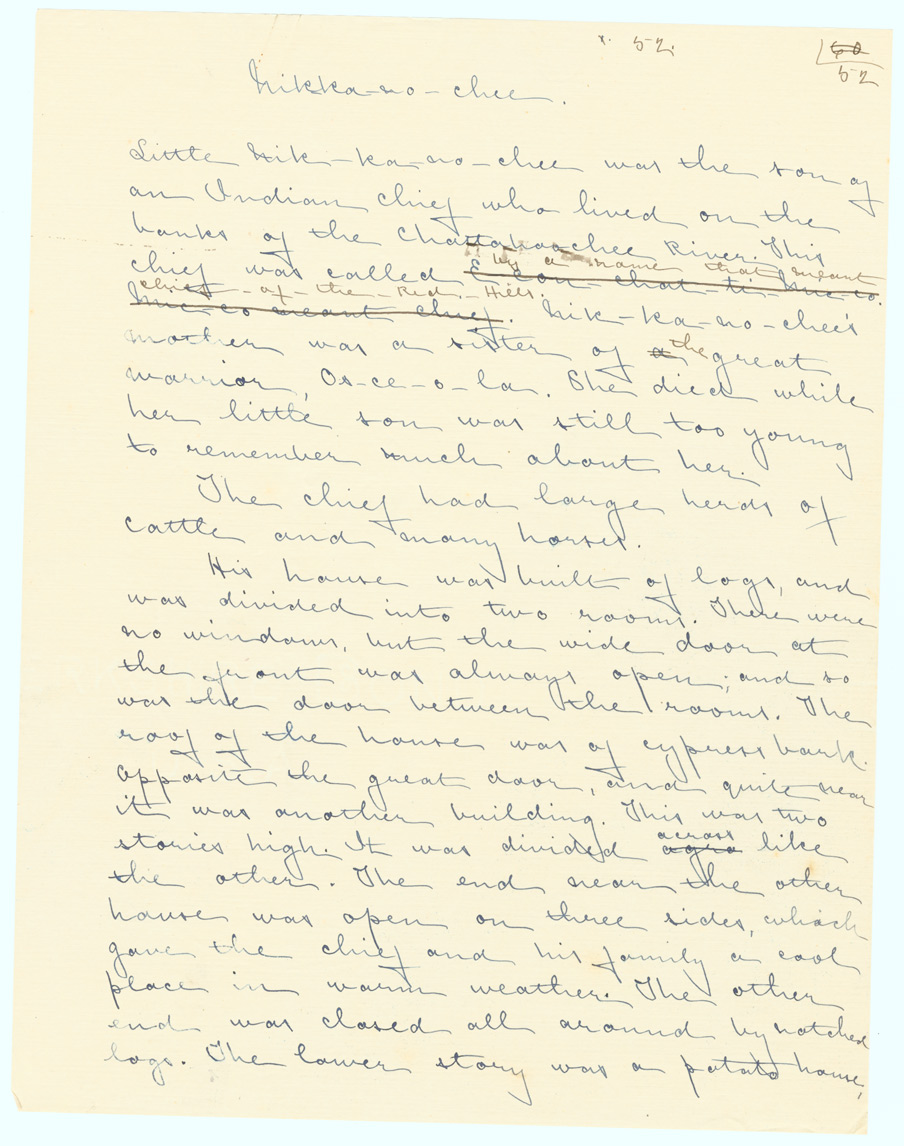 x. 52.
60
52
Nikka-no-chee.
Little Nik-ka-no-chee was the son of
an Indian chief who lived on the
banks of the Chattahoochee River. This
by a name that meant
chief was called E-con-chat-ti-Mic-co.
chief-of-the-Red-Hills.
Mic-co meant chief. Nik-ka-no-chee's
mother was a sister of a the great
warrior, Os-ce-o-la. She died while
her little son was still too young
to remember much about her.
The chief had large herds of
cattle and many horses.
His house was built of logs, and
was divided into two rooms. There were
no windows, but the wide door at
the front was always open; and so
was the door between the rooms. The
roof of the house was of cypress bark.
Opposite the great door, and quite near
it was another building. This was two
across
stories high. It was divided agro like
the other. The end near the other
house was open on three sides, which
gave the chief and his family a cool
place in warm weather. The other
end was closed all around by notched
logs. The lower story was a potato house,